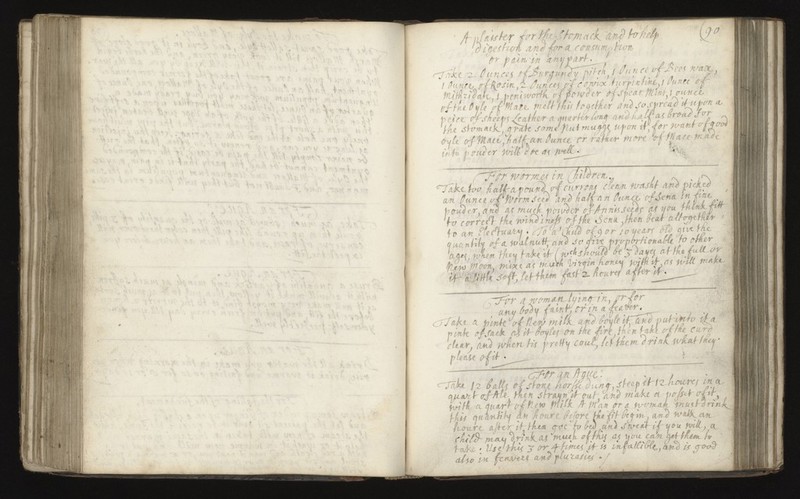 (90
A plaister for the Stomack and to help
digestion and for a consumption
or pain in any part.
Take 2 Ounces of Burgundy pitch, 1 Ounce of Bees wax,
1 Ounce of Rosin, 2 Ounces of Turpintine, 1 Ounce of
Mithridate, 1 peniworth of powder of Spear Mint, 1 ounce
of the Oyle of Mace melt this together and so spread it upon a
peice of sheeps Leather a quarter long and half as broad for
the stomack, grate some Nutmuggs upon it, for want of good
oyle of Mace, half an Ounce or rather more of Mace made
into pouder will doe as well.
For wormes in Children.
Take half a pound of currons clean washt and picked
an Ounce of Wormseed and half an Ounce of Sena in fine
powder, and as much powder of Anniseeds as you think fitt
to correct the windiness of the Sena, then beat altogether
to an Electuary. To a Child of 9 or 10 years old give the
quantity of a walnutt, and so give proportionable to other
ages, when they take it (wch should be 3 days at the full or
New Moon, mixe as much virgin honey with it, as will make
it a little soft, let them fast 2 houres after it.
For a woman lying in, or for
any body faint, or in a feaver.
Take a pinte of New milk and boyle it, and put into it a
pinte of Sack as it boyles on the fire, then take of the Curd
clear, and when tis pretty coul, let them drink what they
please of it.
For an Ague.
Take 12 balls of stone horse dung, steep it 12 houres in a
quart of Ale, then strayn it out, and make a possit of it,
with a quart of New Milk. A Man or a woman must drink
this quantity An houre before the fit begin, and walk an
houre after it, then goe to bed and sweat if you will, a
Child may drink as much of this as you can get them to
take. Use this 3 or 4 times it is infallible, and is good
also in feavers and plurasies.